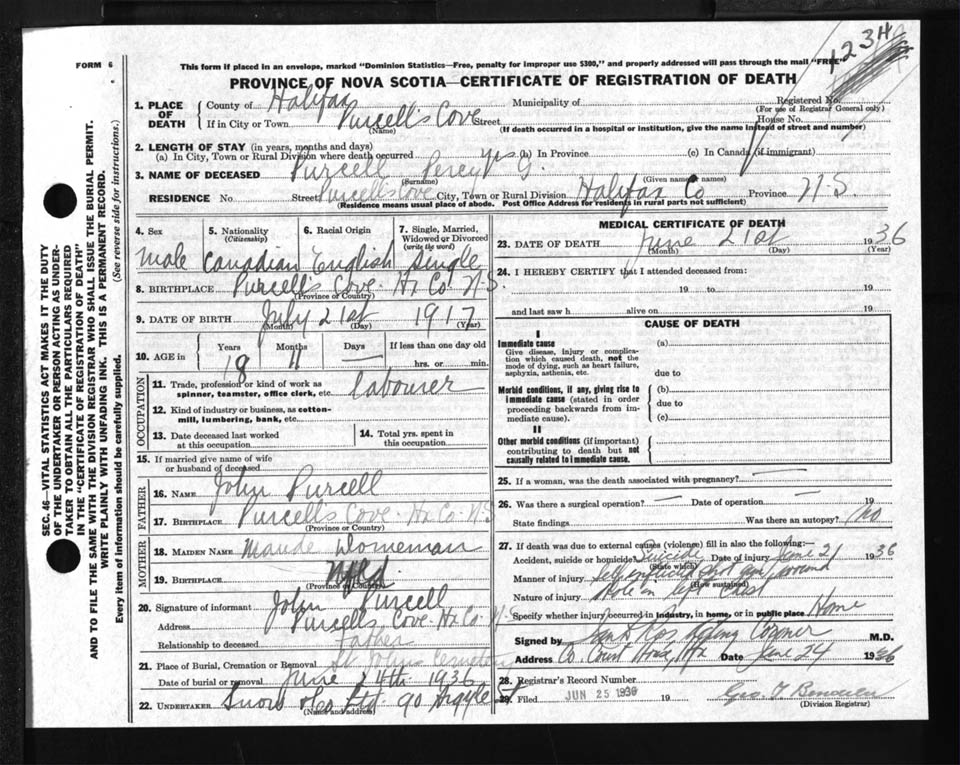 1234
FORM 6
This form if placed in an envelope, marked "Dominion Statistics—Free, penalty for improper use $300," and properly addressed will pass through the mail "FREE"
PROVINCE OF NOVA SCOTIA—CERTIFICATE OF REGISTRATION OF DEATH
SEC. 46—VITAL STATISTICS ACT MAKES IT THE DUTY
OF THE UNDERTAKER OR PERSON ACTING AS UNDER-
TAKER TO OBTAIN ALL THE PARTICULARS REQUIRED
IN THE "CERTIFICATE OF REGISTRATION OF DEATH"
AND TO FILE THE SAME WITH THE DIVISION REGISTRAR WHO SHALL ISSUE THE BURIAL PERMIT.
WRITE PLAINLY WITH UNFADING INK. THIS IS A PERMANENT RECORD.
Every item of information should be carefully supplied. (See reverse side for instructions.)
1. PLACE OF DEATH County of Halifax Municipality of Registered No.
(For use of Registrar General only)
If in City or Town Purcell's Cove Street House No.
(Name) (If death occurred in a hospital or institution, give the name instead of street and number)
2. LENGTH OF STAY (in years, months and days)
(a) In City, Town or Rural Division where death occurred yrs (b) In Province (c) In Canada (if immigrant)
3. NAME OF DECEASED Purcell Percy G.
(Surname) (Given name or names)
RESIDENCE No Street Purcell's Cove City, Town or Rural Division Halifax Co Province N-S
(Residence means usual place of abode. Post Office Address for residents in rural parts not sufficient)
4. Sex 5. Nationality (Citizenship) 6. Racial Origin 7. Single, Married, Widowed or Divorced (write the word)
Male Canadian English Single
8. BIRTHPLACE Purcell's Cove. Hx Co. N-S.
(Province or Country)
9. DATE OF BIRTH July 21st 1917
(Month) (Day) (Year)
10. AGE in Years Months Days If less than one day old
18 11 — hrs. or min.
OCCUPATION
11. Trade, profession or kind of work as spinner, teamster, office clerk, etc. Labourer
12. Kind of industry or business, as cotton-mill, lumbering, bank, etc.
13. Date deceased last worked at this occupation 14. Total yrs. spent in this occupation
15. If married give name of wife or husband of deceased
FATHER
16. NAME John Purcell
17. BIRTHPLACE Purcell's Cove. Hx Co. N-S
(Province or Country)
MOTHER
18. MAIDEN NAME Maude
19. BIRTHPLACE
(Province or Country)
20. Signature of informant John Purcell
Address Purcells Cove. Hx Co. N-S
Relationship to deceased Father
21. Place of Burial, Cremation or Removal St Johns Cemetery
Date of burial or removal June 24th 1936
22. UNDERTAKER Snow & Co Ltd. 90 Argyle St
(Name and address)
MEDICAL CERTIFICATE OF DEATH
23. DATE OF DEATH June 21st 1936
(Month) (Day) (Year)
24. I HEREBY CERTIFY that I attended deceased from:
19 to 19
and last saw h alive on 19
CAUSE OF DEATH
I
Immediate cause (a)
Give disease, injury or complica-
tion which caused death, not the
mode of dying, such as heart failure,
asphyxia, asthenia, etc. due to
Morbid conditions, if any, giving rise to (b)
immediate cause (stated in order due to
proceeding backwards from im-
mediate cause). (c)
II
Other morbid conditions (if important)
contributing to death but not
causally related to immediate cause.
25. If a woman, was the death associated with pregnancy?
26. Was there a surgical operation? — Date of operation — 19
State findings Was there an autopsy? No
27. If death was due to external cause (violence) fill in also the following:—
Accident, suicide or homicide? Suicide Date of injury June 21 1936
(State which)
Manner of injury Self inflicted shot gun wound
(How sustained)
Nature of injury Hole in left chest
Specify whether injury occurred in industry, in home, or in public place Home
Signed by Coroner M.D.
Address Co. Court House, Hx Date June 24 1936
28. Registrar's Record Number
29. Filed JUN 25 1936 19
(Division Registrar)